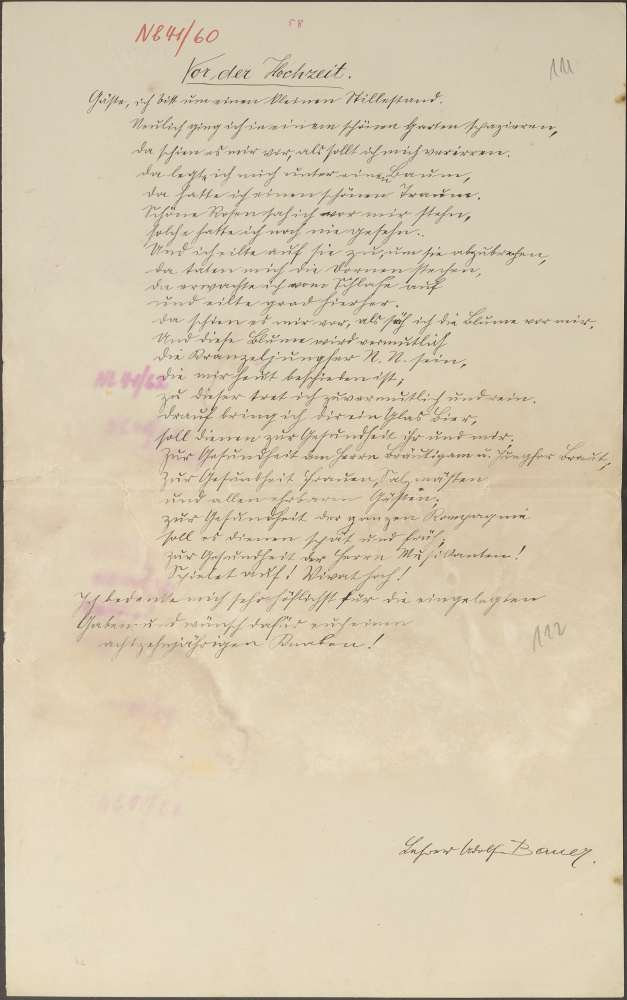 58
NB 41/60
Vor der Hochzeit.
111
Gäste, ich bitt um einen kleinen Stillestand.
Neulich ging ich in einem schönen Garten spazieren,
da schien es mir vor, als sollt ich mich verirren.
Da legte ich mich unter einen Baum,
da hatte ich einen schönen Traum.
Schöne Rosen sah ich vor mir stehn,
solche hatte ich noch nie gesehn.
Und ich eilte auf sie zu, um sie abzubrechen,
da taten mich die Dornen stechen,
da erwachte ich vom Schlafe auf
und eilte grad hierher.
Da schien es mir vor, als säh ich die Blume vor mir.
Und diese Blume wird vermutlich
die Kranzeljungfer N. N. sein,
die mir heut beschieden ist,
zu dieser tret ich zuvermutlich und rein.
Drauf bring ich dir ein Glas Bier,
soll dienen zur Gesundheit ihr und mir.
Zur Gesundheit dem Herrn Bräutigam u. Jungfer Braut,
Zur Gesundheit Frauen, Salzmästen
und allen ehrbaren Gästen.
Zur Gesundheit der ganzen Kompagnie
soll es dienen spät und früh,
zur Gesundheit der Herrn Musikanten!
Spielet auf! Vivat hoch!
Ich bedenke mich sehr höflichst für die eingelegten
Gaben und wünsch dafür euch einen
achtzehnjährigen Knaben!
112
Lehrer Adolf Bauer.